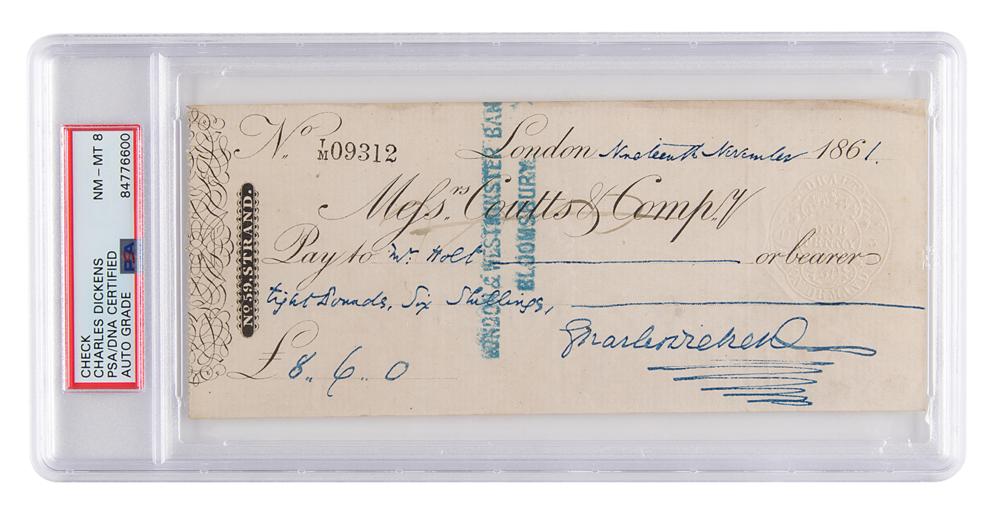 CHECK
CHARLES DICKENS
PSA/DNA CERTIFIED
AUTO GRADE
PSA
NM-MT 8
84776600
No. 59. STRAND.
No. L/M 09312
London Nineteenth November 1861.
Messrs. Coutts & Compy
Pay to Mr. Holt or bearer
Eight Pounds, Six Shillings,
£8. 6. 0
Charles Dickens
LONDON & WESTMINSTER BAN
BLOOMSBURY